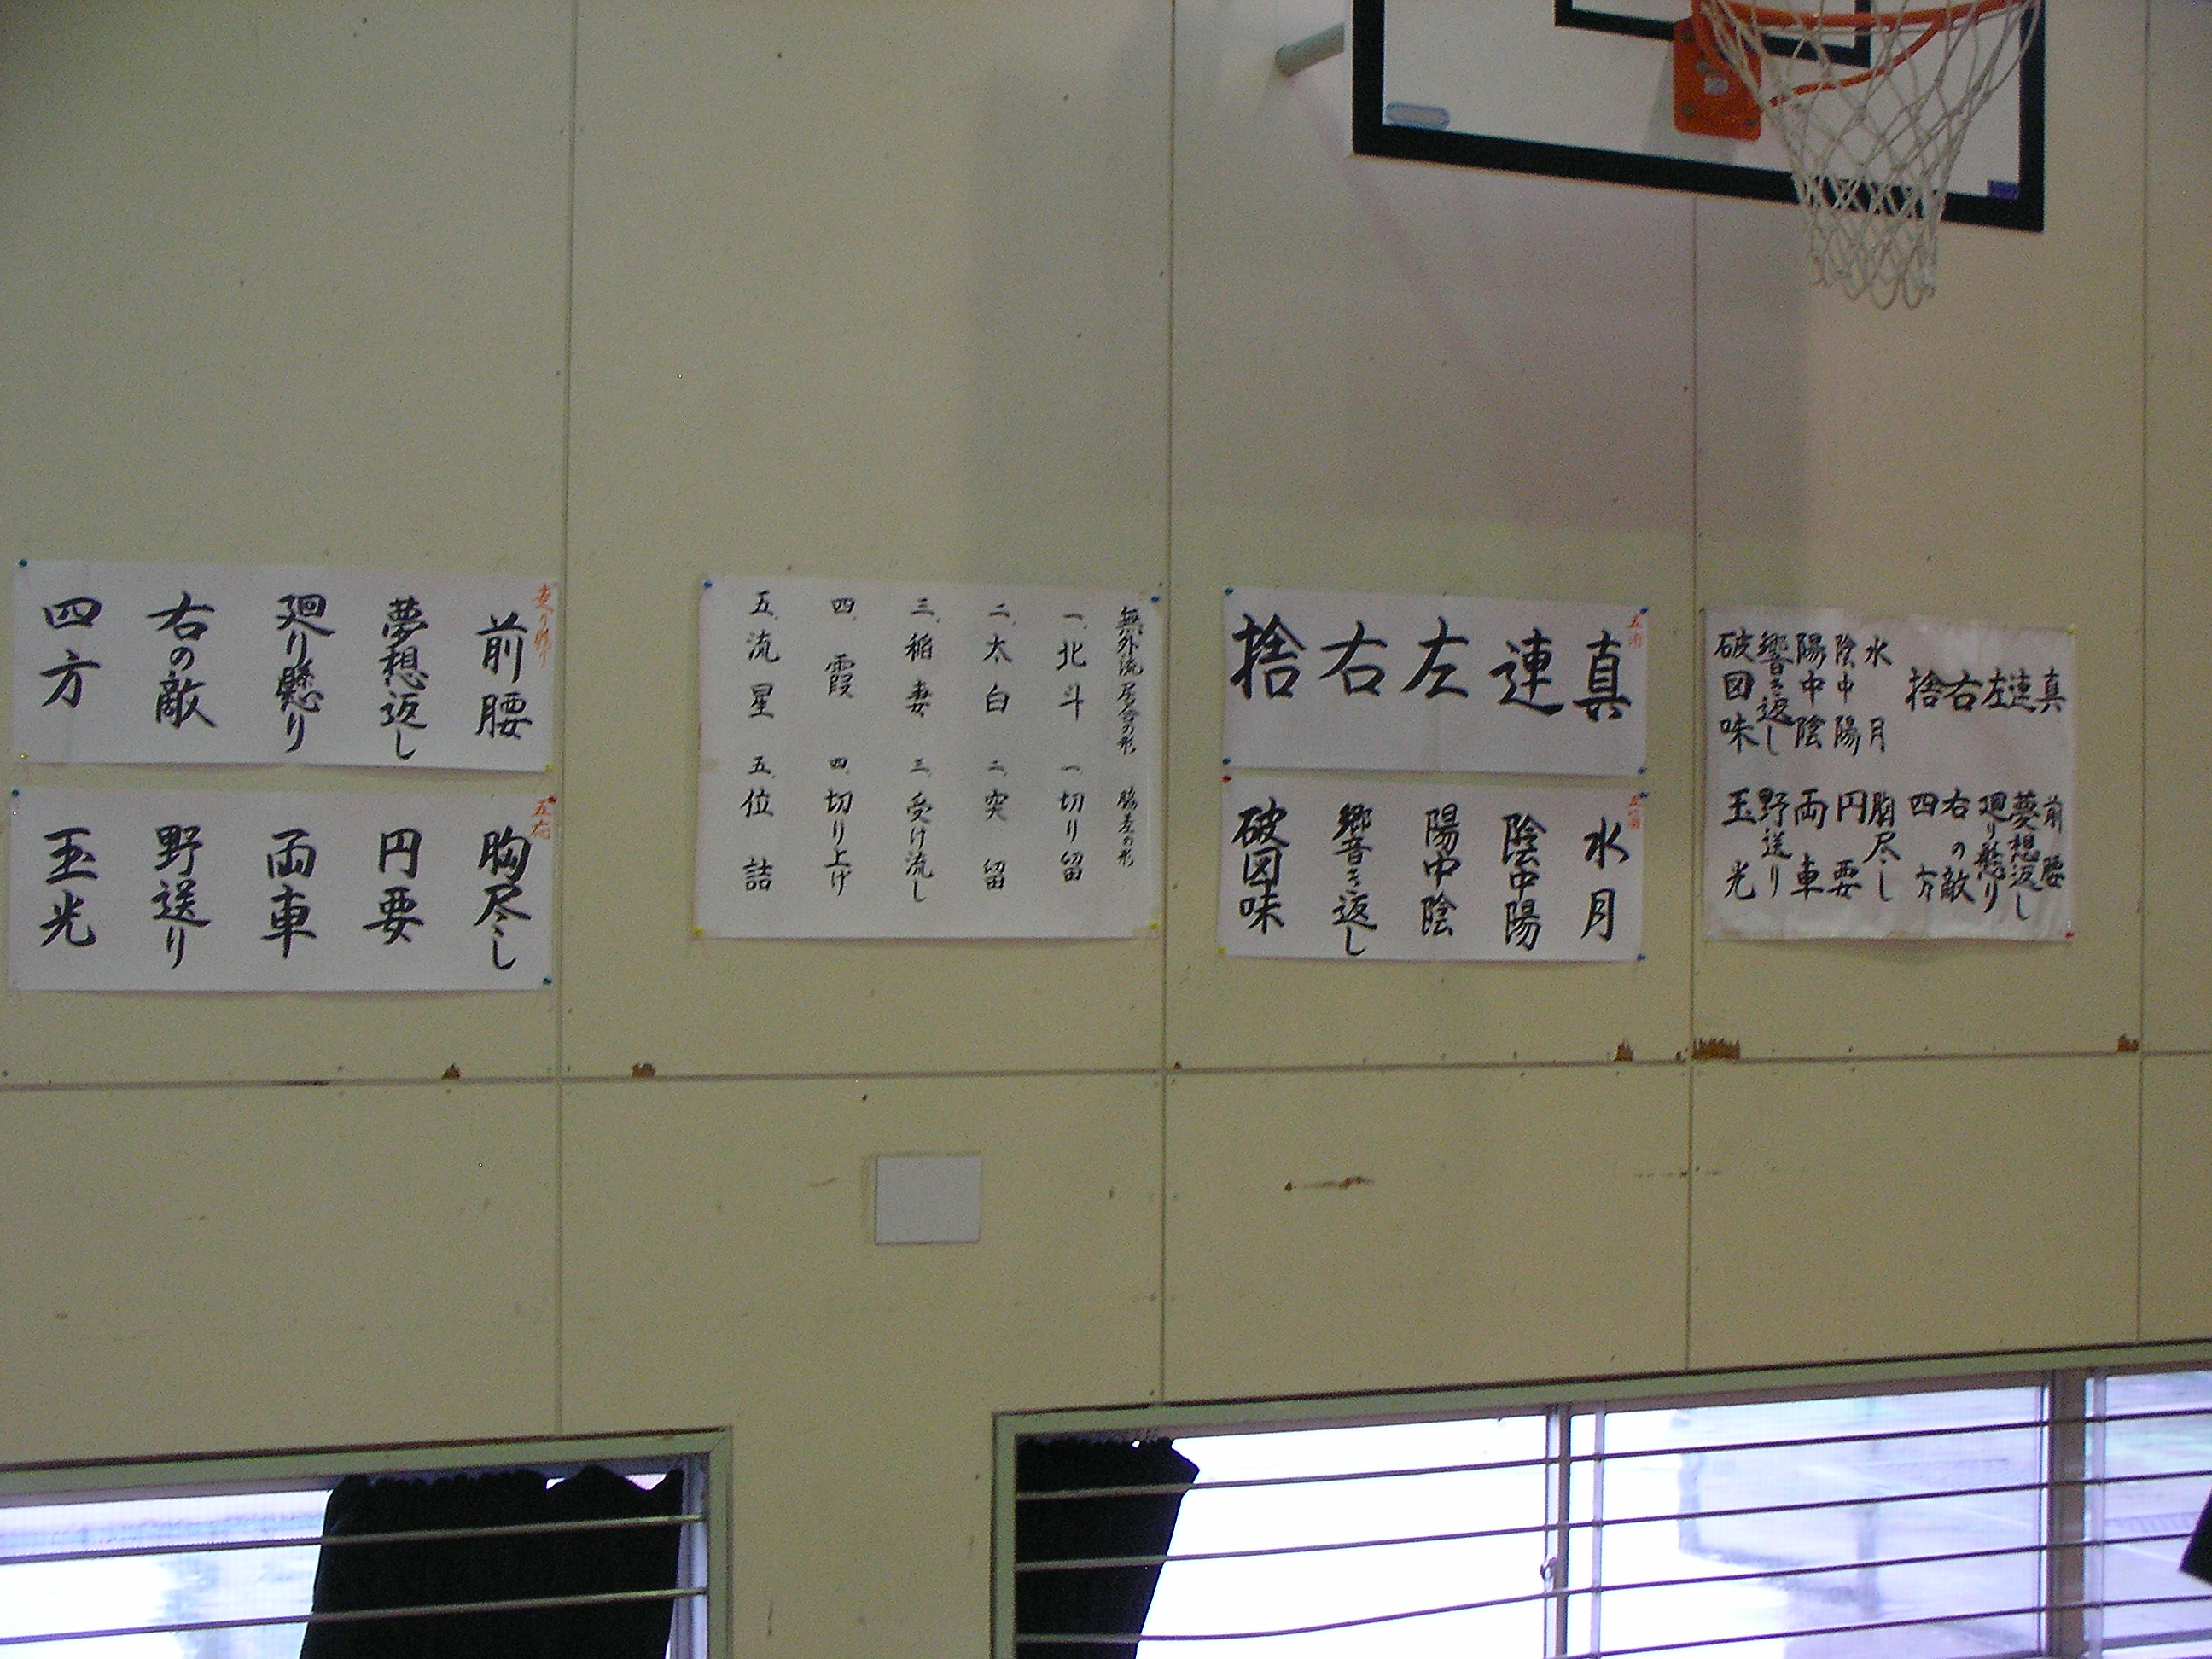 真
連
左
右
捨
水月
陰中陽
陽中陰
響き返し
破図味
前腰
夢想返し
廻り懸り
右の敵
四方
胸尽し
円要
両車
野送り
玉光
五用
真
連
左
右
捨
五箇
水月
陰中陽
陽中陰
響き返し
破図味
無外流居合の形
一、北斗
二、太白
三、稲妻
四、霞
五、流星
脇差の形
一、切り留
二、突留
三、受け流し
四、切り上げ
五、位詰
前腰
夢想返し
廻り懸り
右の敵
四方
五応
胸尽し
円要
両車
野送り
玉光